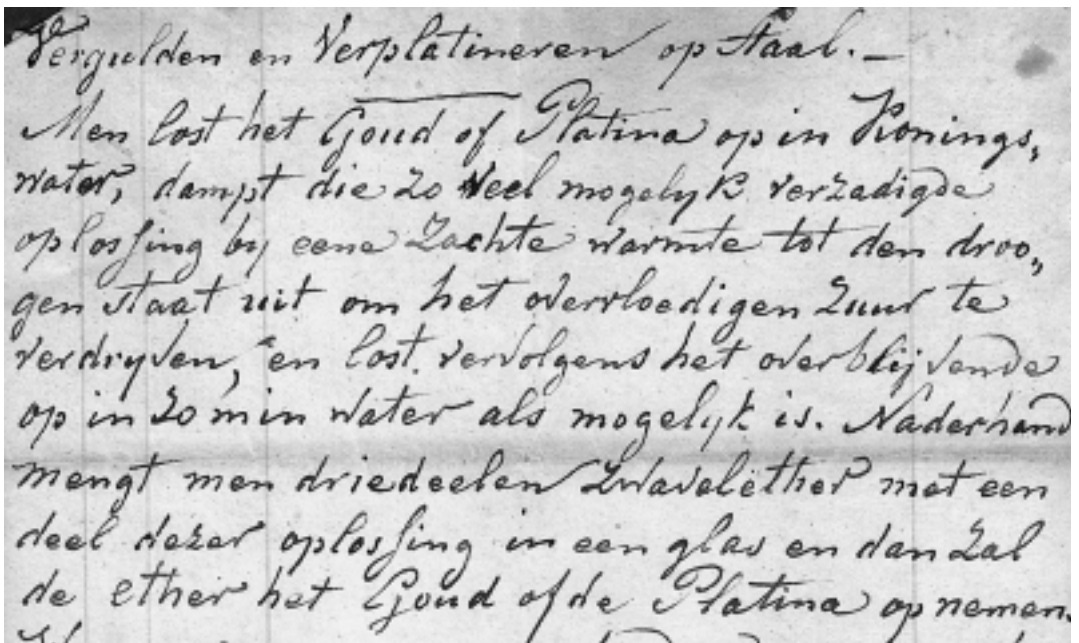 Vergulden en Verplatineren op Staal. —
Men lost het Goud of Platina op in Konings„
water, dampt die zo veel mogelyk verzadigde
oplossing by eene zachte warmte tot den droo„
gen staat uit om het overvloedigen zuur te
verdryven, en lost vervolgens het overblijvende
op in zo min water als mogelyk is. Naderhand
mengt men driedeelen zwavelëther met een
deel dezer oplossing in een glas en dan zal
de ether het Goud of de Platina opnemen.